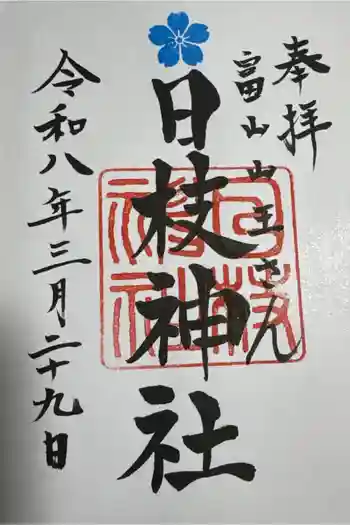 奉拝
富山山王さん
日枝神社
令和八年三月二十九日
日枝神社